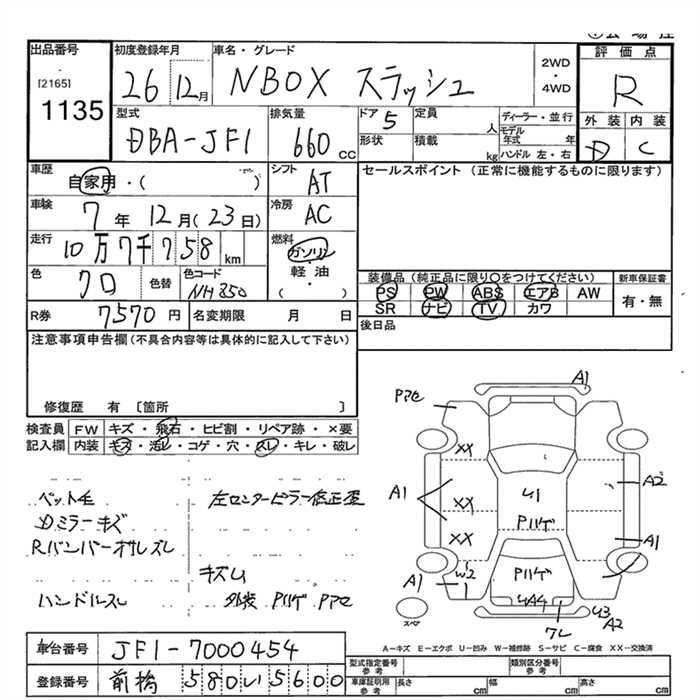 出品番号
[2165]
1135
初度登録年月
26 12月
車名・グレード
NBOX スラッシュ
2WD
・
4WD
評価点
R
型式
DBA-JF1
排気量
660 cc
ドア 5
形状
定員 人
積載 kg
ディーラー・並行
モデル年式 年
ハンドル 左・右
外装 内装
D C
車歴
自家用・( )
シフト
AT
セールスポイント (正常に機能するものに限ります)
車検
7年 12月(23日)
冷房
AC
走行
10万7千758km
燃料
ガソリン
軽・油
( ・ )
色
クロ
色替
色コード
NH850
装備品 (純正品に限り○をつけてください)
新車保証書
PS PW ABS エアB AW
有・無
SR ナビ TV カワ
R券
7570円
名変期限 月 日
後日品
注意事項申告欄(不具合内容等は具体的に記入して下さい)
修復歴 有 〔箇所 〕
検査員 FW キズ・飛石・ヒビ割・リペア跡・×要
記入欄 内装 キズ・汚レ・コゲ・穴・スレ・キレ・破レ
ペット毛
左センターピラー修正歪
Dミラーキズ
Rバンパーオサレズレ
キズ凹
ハンドルスレ
外装 PハゲPアセ
Pアセ
A1
XX
A1
XX
XX
U1
Pハゲ
A2
A1
A1
W2
1
Pハゲ
UA4
U3
A2
ワレ
スペア
A-キズ E-エクボ U-凹み W-補修跡 S-サビ C-腐食 XX-交換済
車台番号
JF1-7000454
登録番号
前橋 580 い 5600
型式指定番号
参考
類別区分番号
参考
車庫証明用
参考
長さ cm
幅 cm
高さ cm